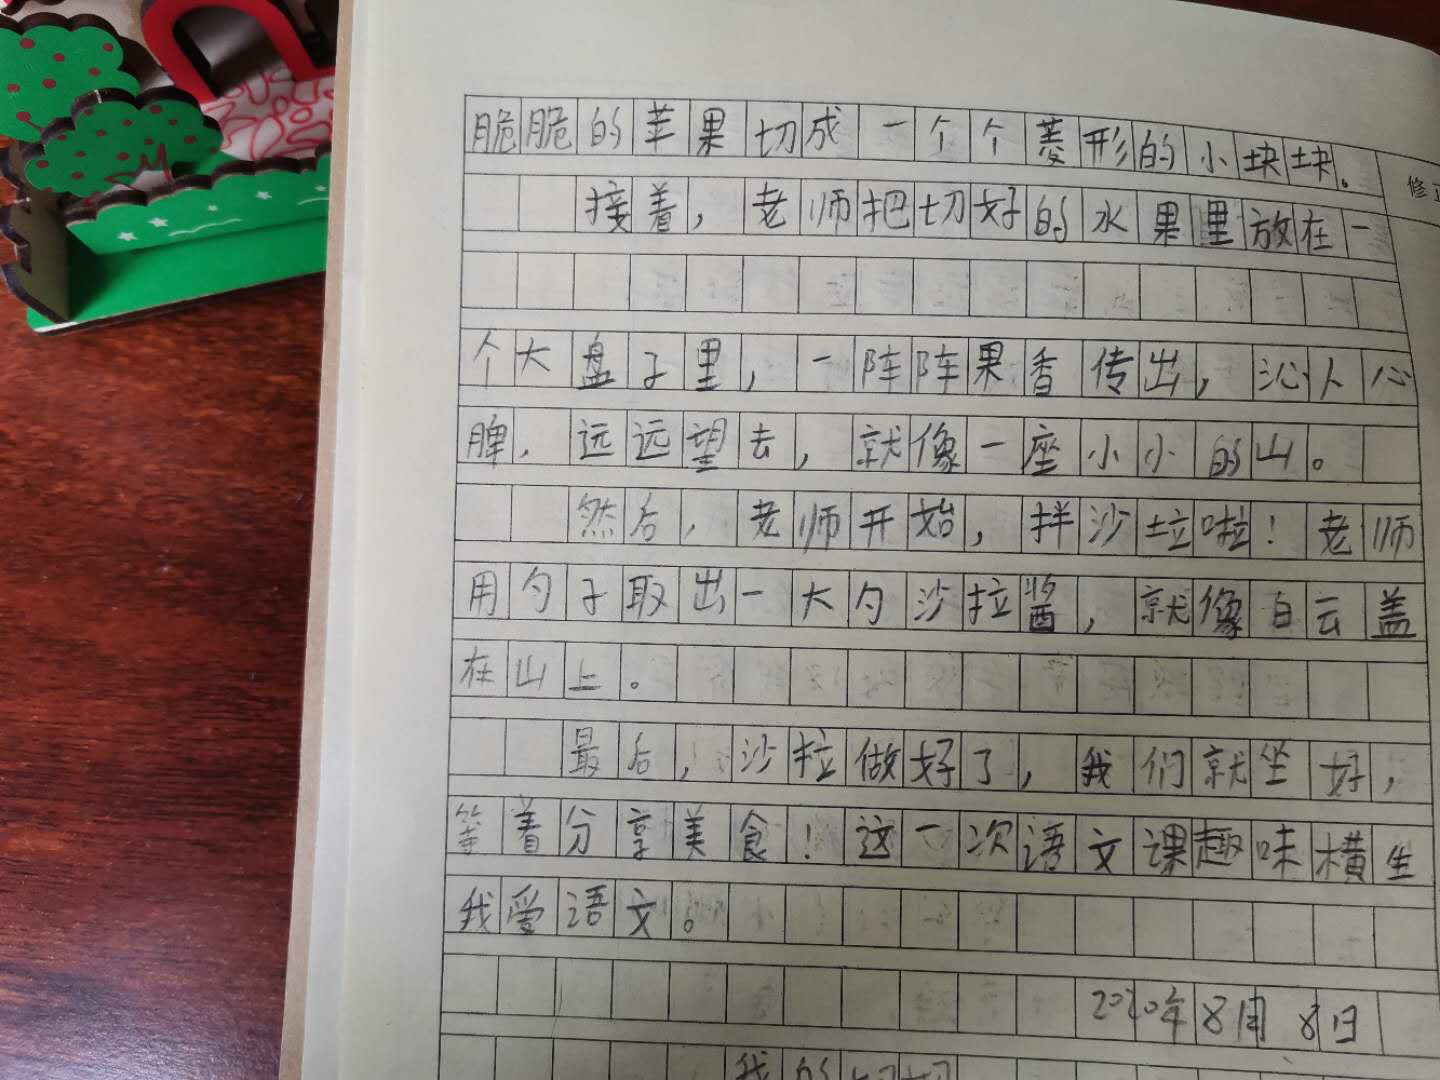 脆脆的苹果切成一个个菱形的小块块。
修正
接着，老师把切好的水果里放在一
个大盘子里，一阵阵果香传出，沁人心
脾，远远望去，就像一座小小的山。
然后，老师开始，拌沙拉啦！老师
用勺子取出一大勺沙拉酱，就像白云盖
在山上。
最后，沙拉做好了，我们就坐好，
等着分享美食！这一次语文课趣味横生
我爱语文。
2020年8月8日
我的